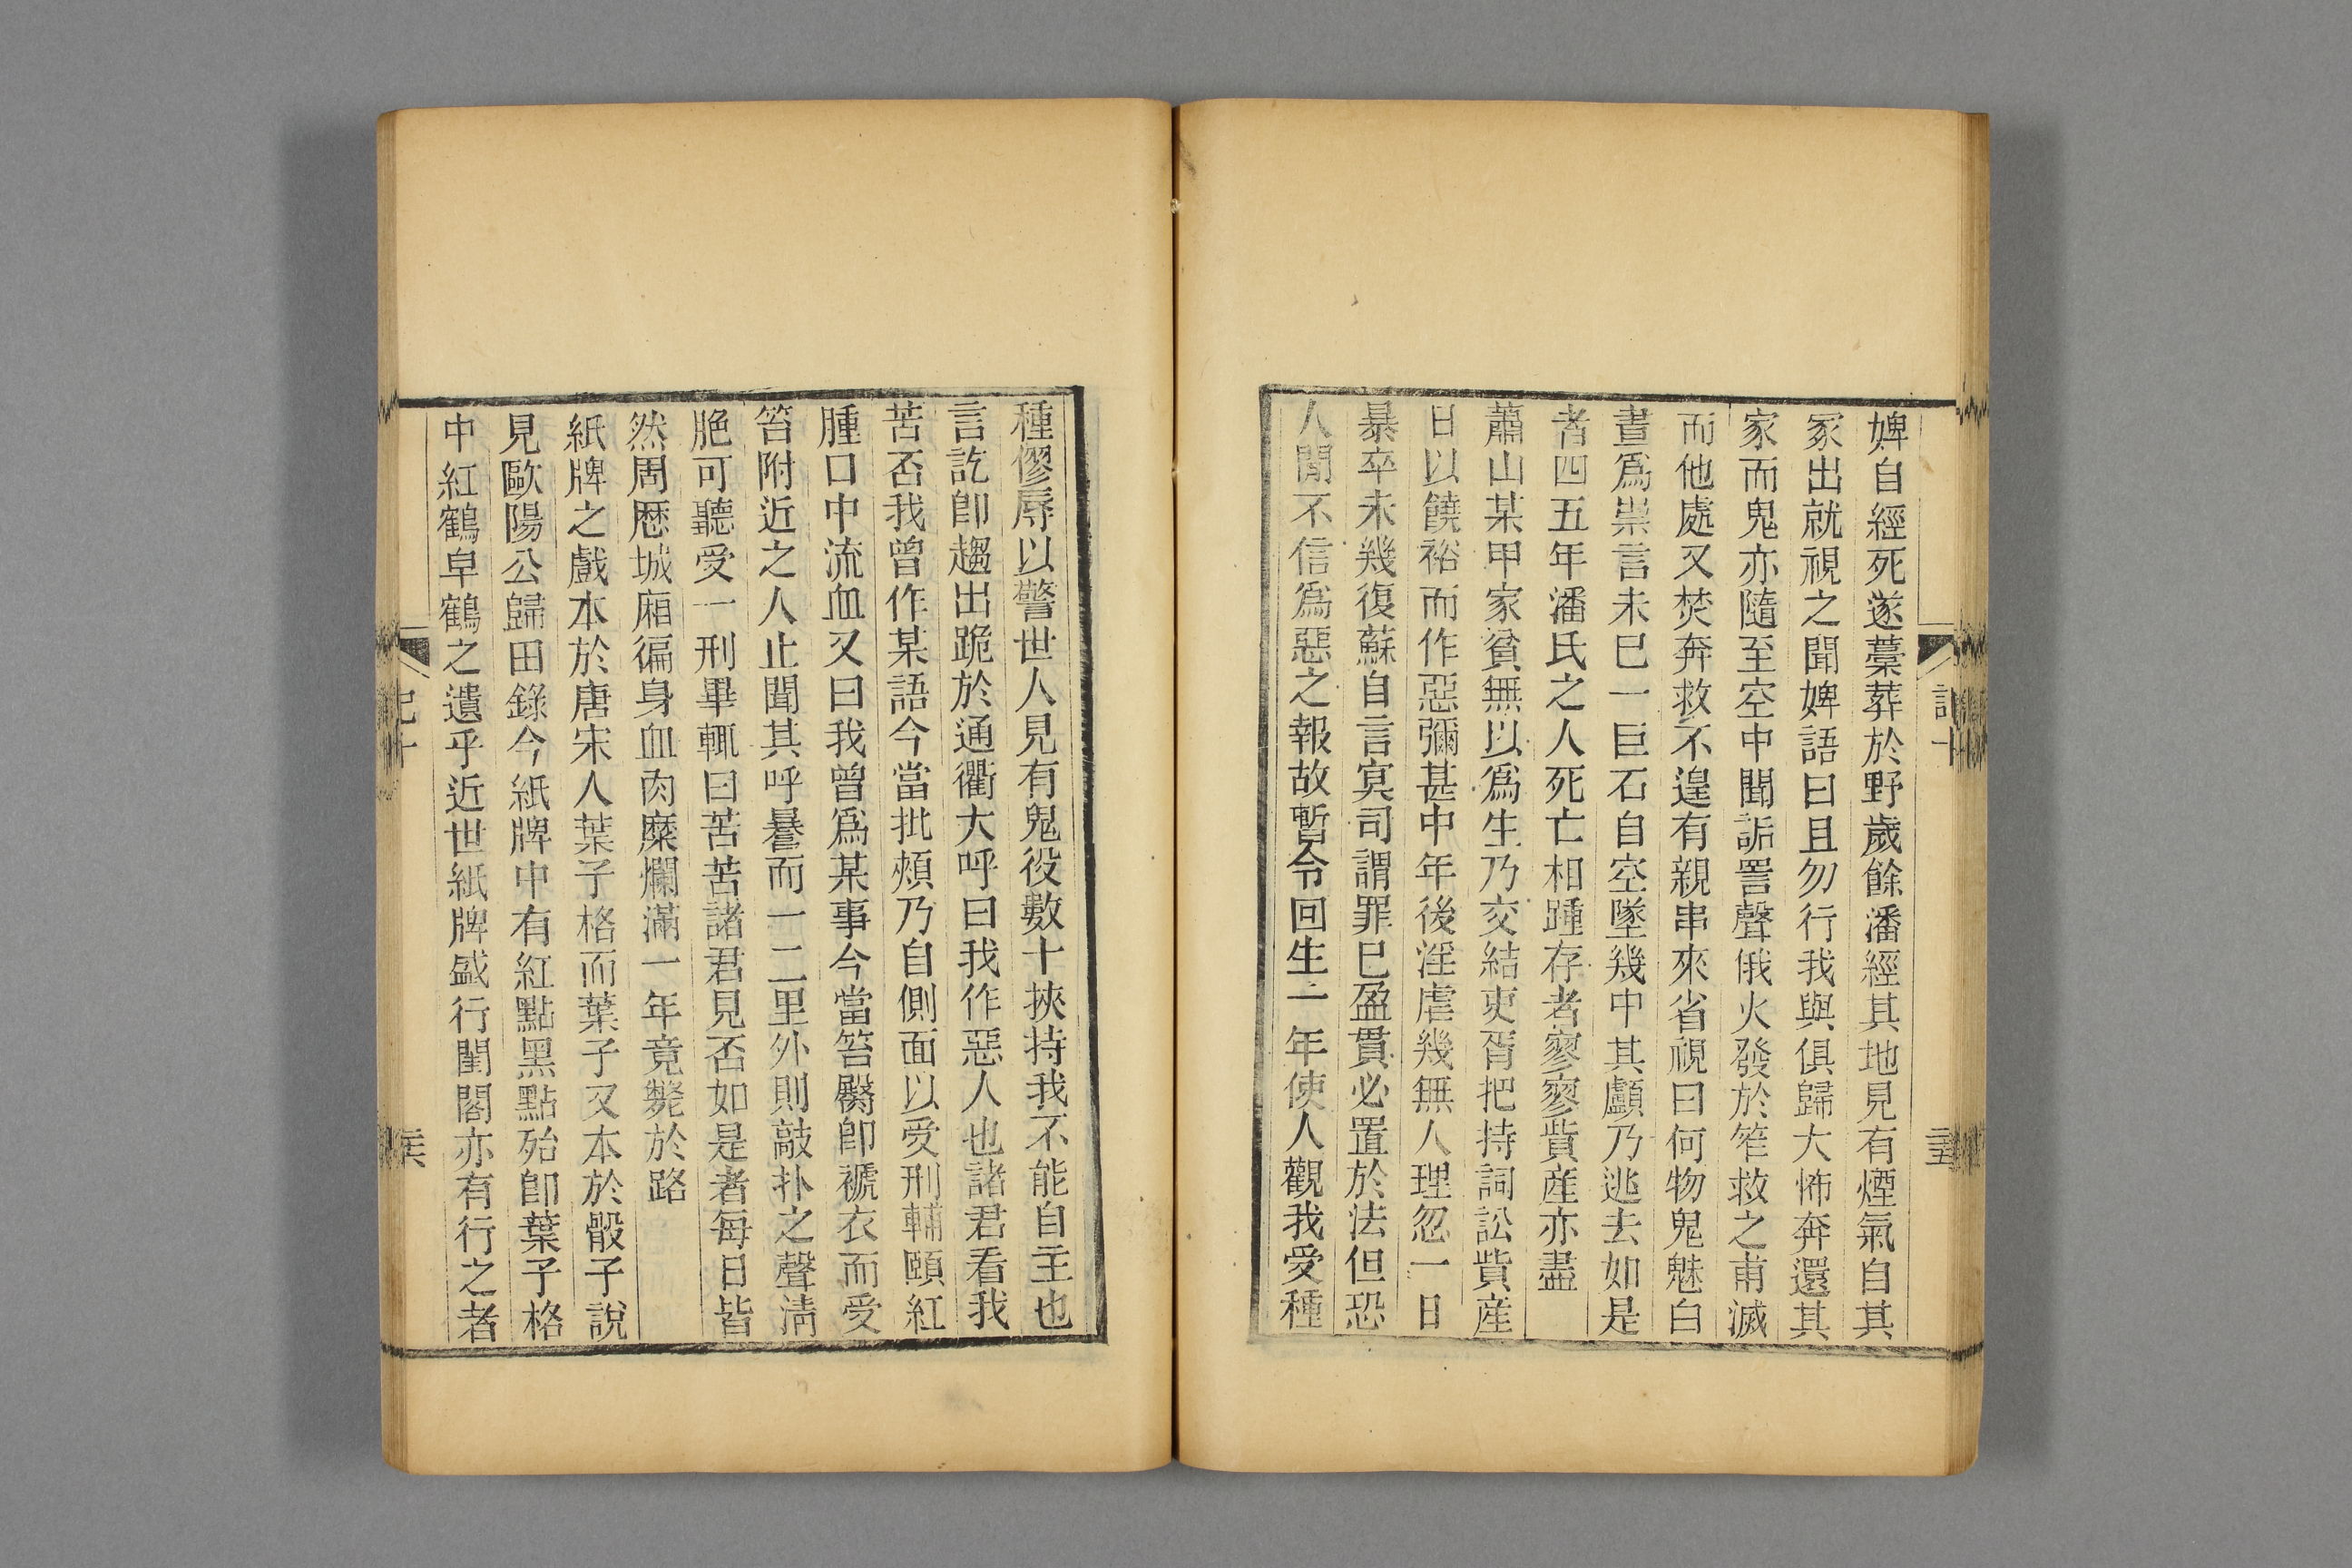 婢自經死遂藁葬於野歲餘潘經其地見有煙氣自其
冢出就視之聞婢語曰且勿行我與俱歸大怖奔還其
家而鬼亦隨至空中聞詬詈聲俄火發於笮救之甫滅
而他處又焚奔救不遑有親串來省視曰何物鬼魅白
晝爲祟言未巳一巨石自空墜幾中其顱乃逃去如是
者四五年潘氏之人死亡相踵存者寥寥貲産亦盡
蕭山某甲家貧無以爲生乃交結吏胥把持詞訟貲産
日以饒裕而作惡彌甚中年後淫虐幾無人理忽一日
暴卒未幾復蘇自言冥司謂罪巳盈貫必置於法但恐
人閒不信爲惡之報故暫令回生一年使人觀我受種
種僇辱以警世人見有鬼役數十挾持我不能自主也
言訖卽趨出跪於通衢大呼曰我作惡人也諸君看我
苦否我曾作某語今當批頰乃自側面以受刑輔頤紅
腫口中流血又曰我曾爲某事今當笞臀卽褫衣而受
笞附近之人止聞其呼謈而一二里外則敲扑之聲淸
脆可聽受一刑畢輒曰苦苦諸君見否如是者每日皆
然周歷城廂徧身血肉糜爛滿一年竟斃於路
紙牌之戲本於唐宋人葉子格而葉子又本於骰子說
見歐陽公歸田錄今紙牌中有紅點黑點殆卽葉子格
中紅鶴皁鶴之遺乎近世紙牌盛行閨閤亦有行之者